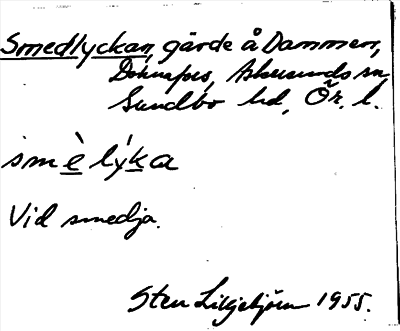 Smedlyckan, gärde å Dammen,
Askersunds sn,
Sundbo hd, Ör. l.
smè lýka
Vid smedja.
Sten Liljebjörn 1955.